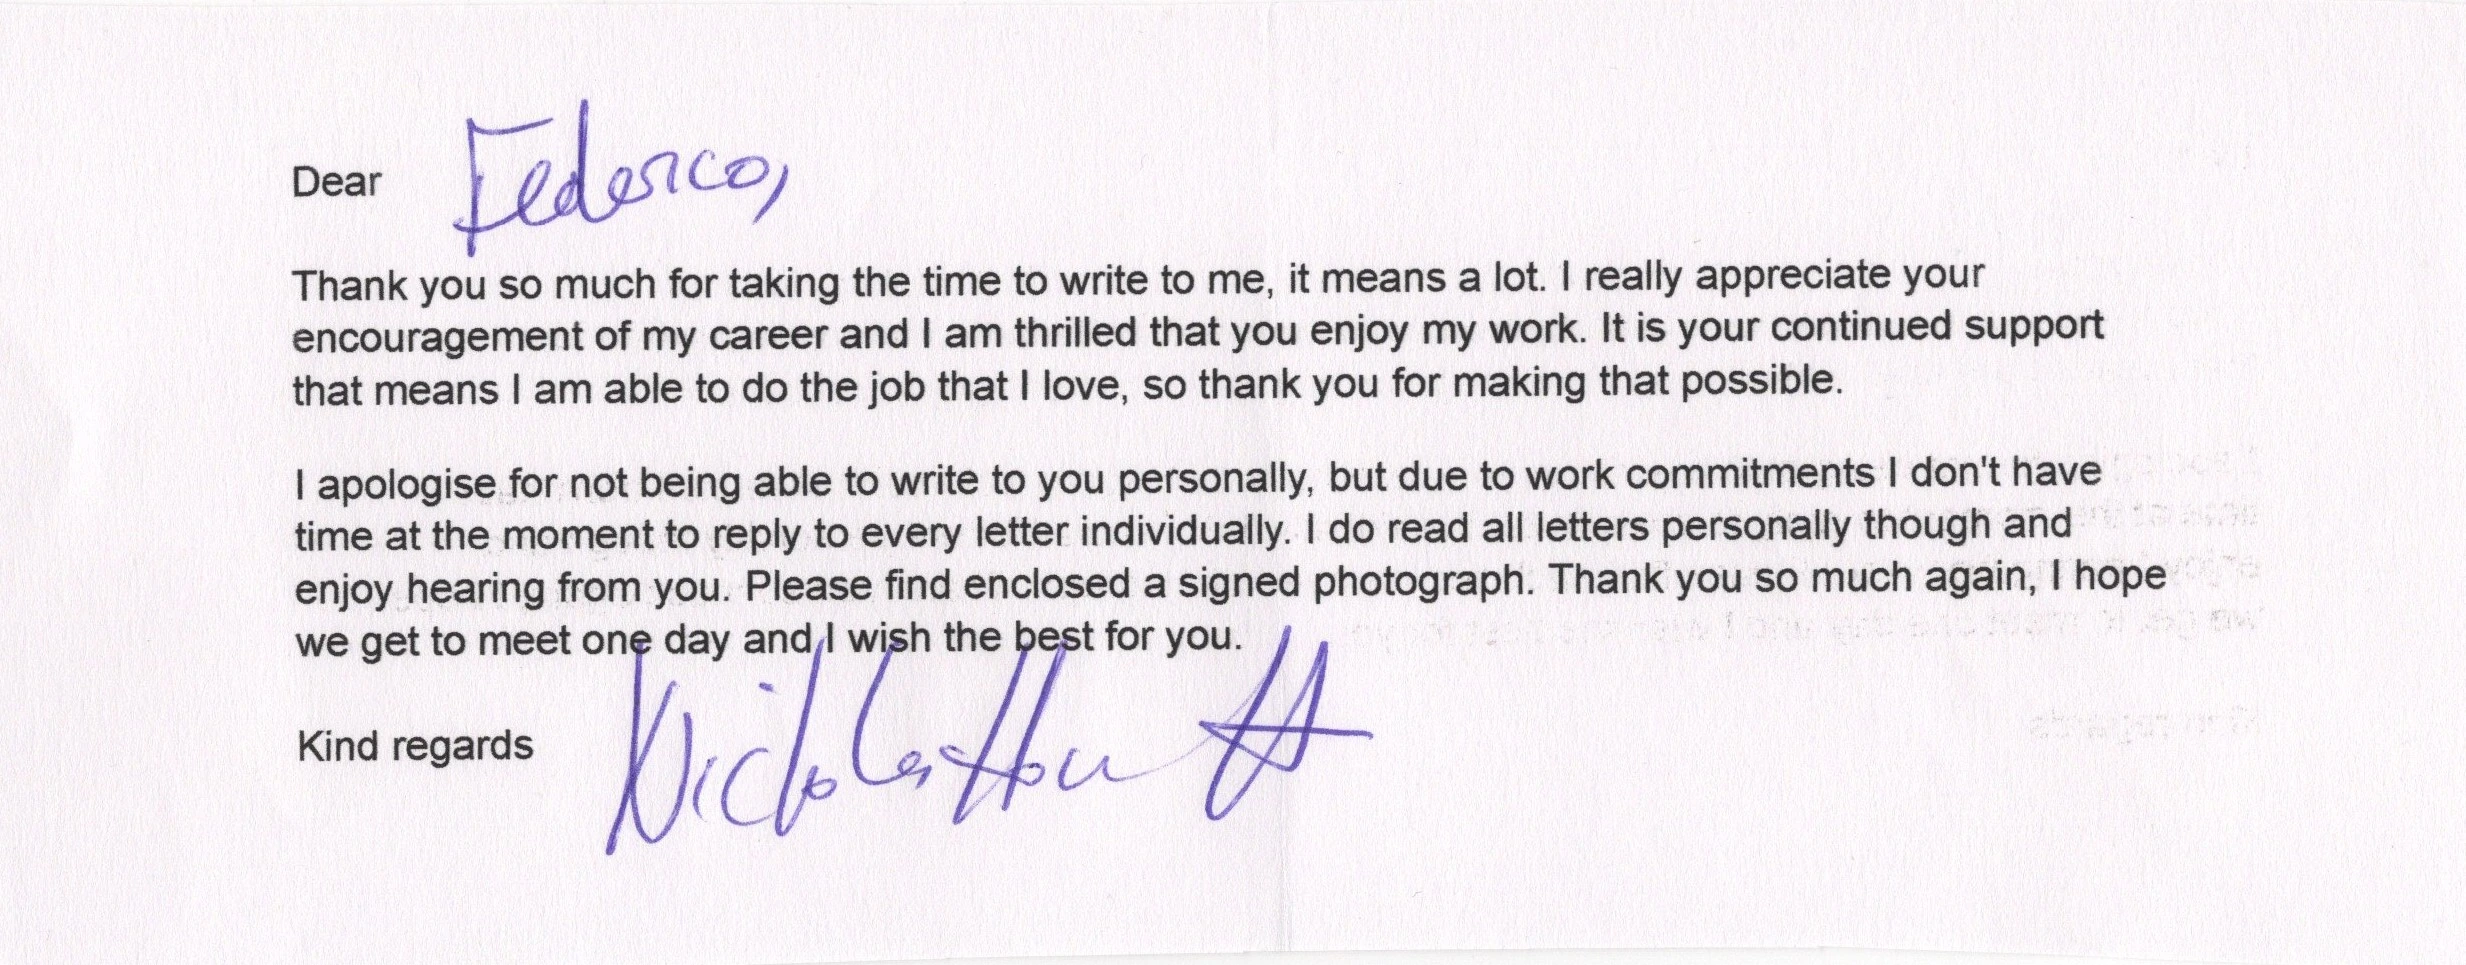 Dear Federico,
Thank you so much for taking the time to write to me, it means a lot. I really appreciate your
encouragement of my career and I am thrilled that you enjoy my work. It is your continued support
that means I am able to do the job that I love, so thank you for making that possible.
I apologise for not being able to write to you personally, but due to work commitments I don't have
time at the moment to reply to every letter individually. I do read all letters personally though and
enjoy hearing from you. Please find enclosed a signed photograph. Thank you so much again, I hope
we get to meet one day and I wish the best for you.
Kind regards Nicholas Hoult